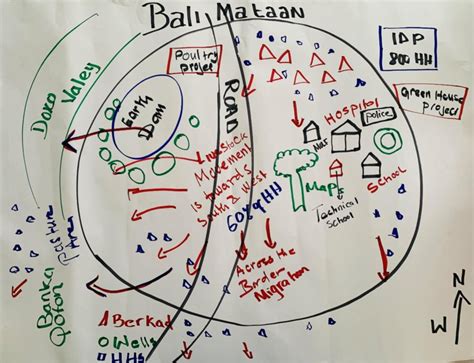 Bali Mataan
IDP
800 HH
Poultry
project
Green House
project
Doxo Valey
Earth
Dam
ROAD
Hospital
Police
NGS
School
Technical
School
Map
Livestock
Movement
is towards
South & West
60% of HH
Across the
Border
Migration
Pasture
Area
Banka
Qoton
Berkad
Wells
HHS
N
W